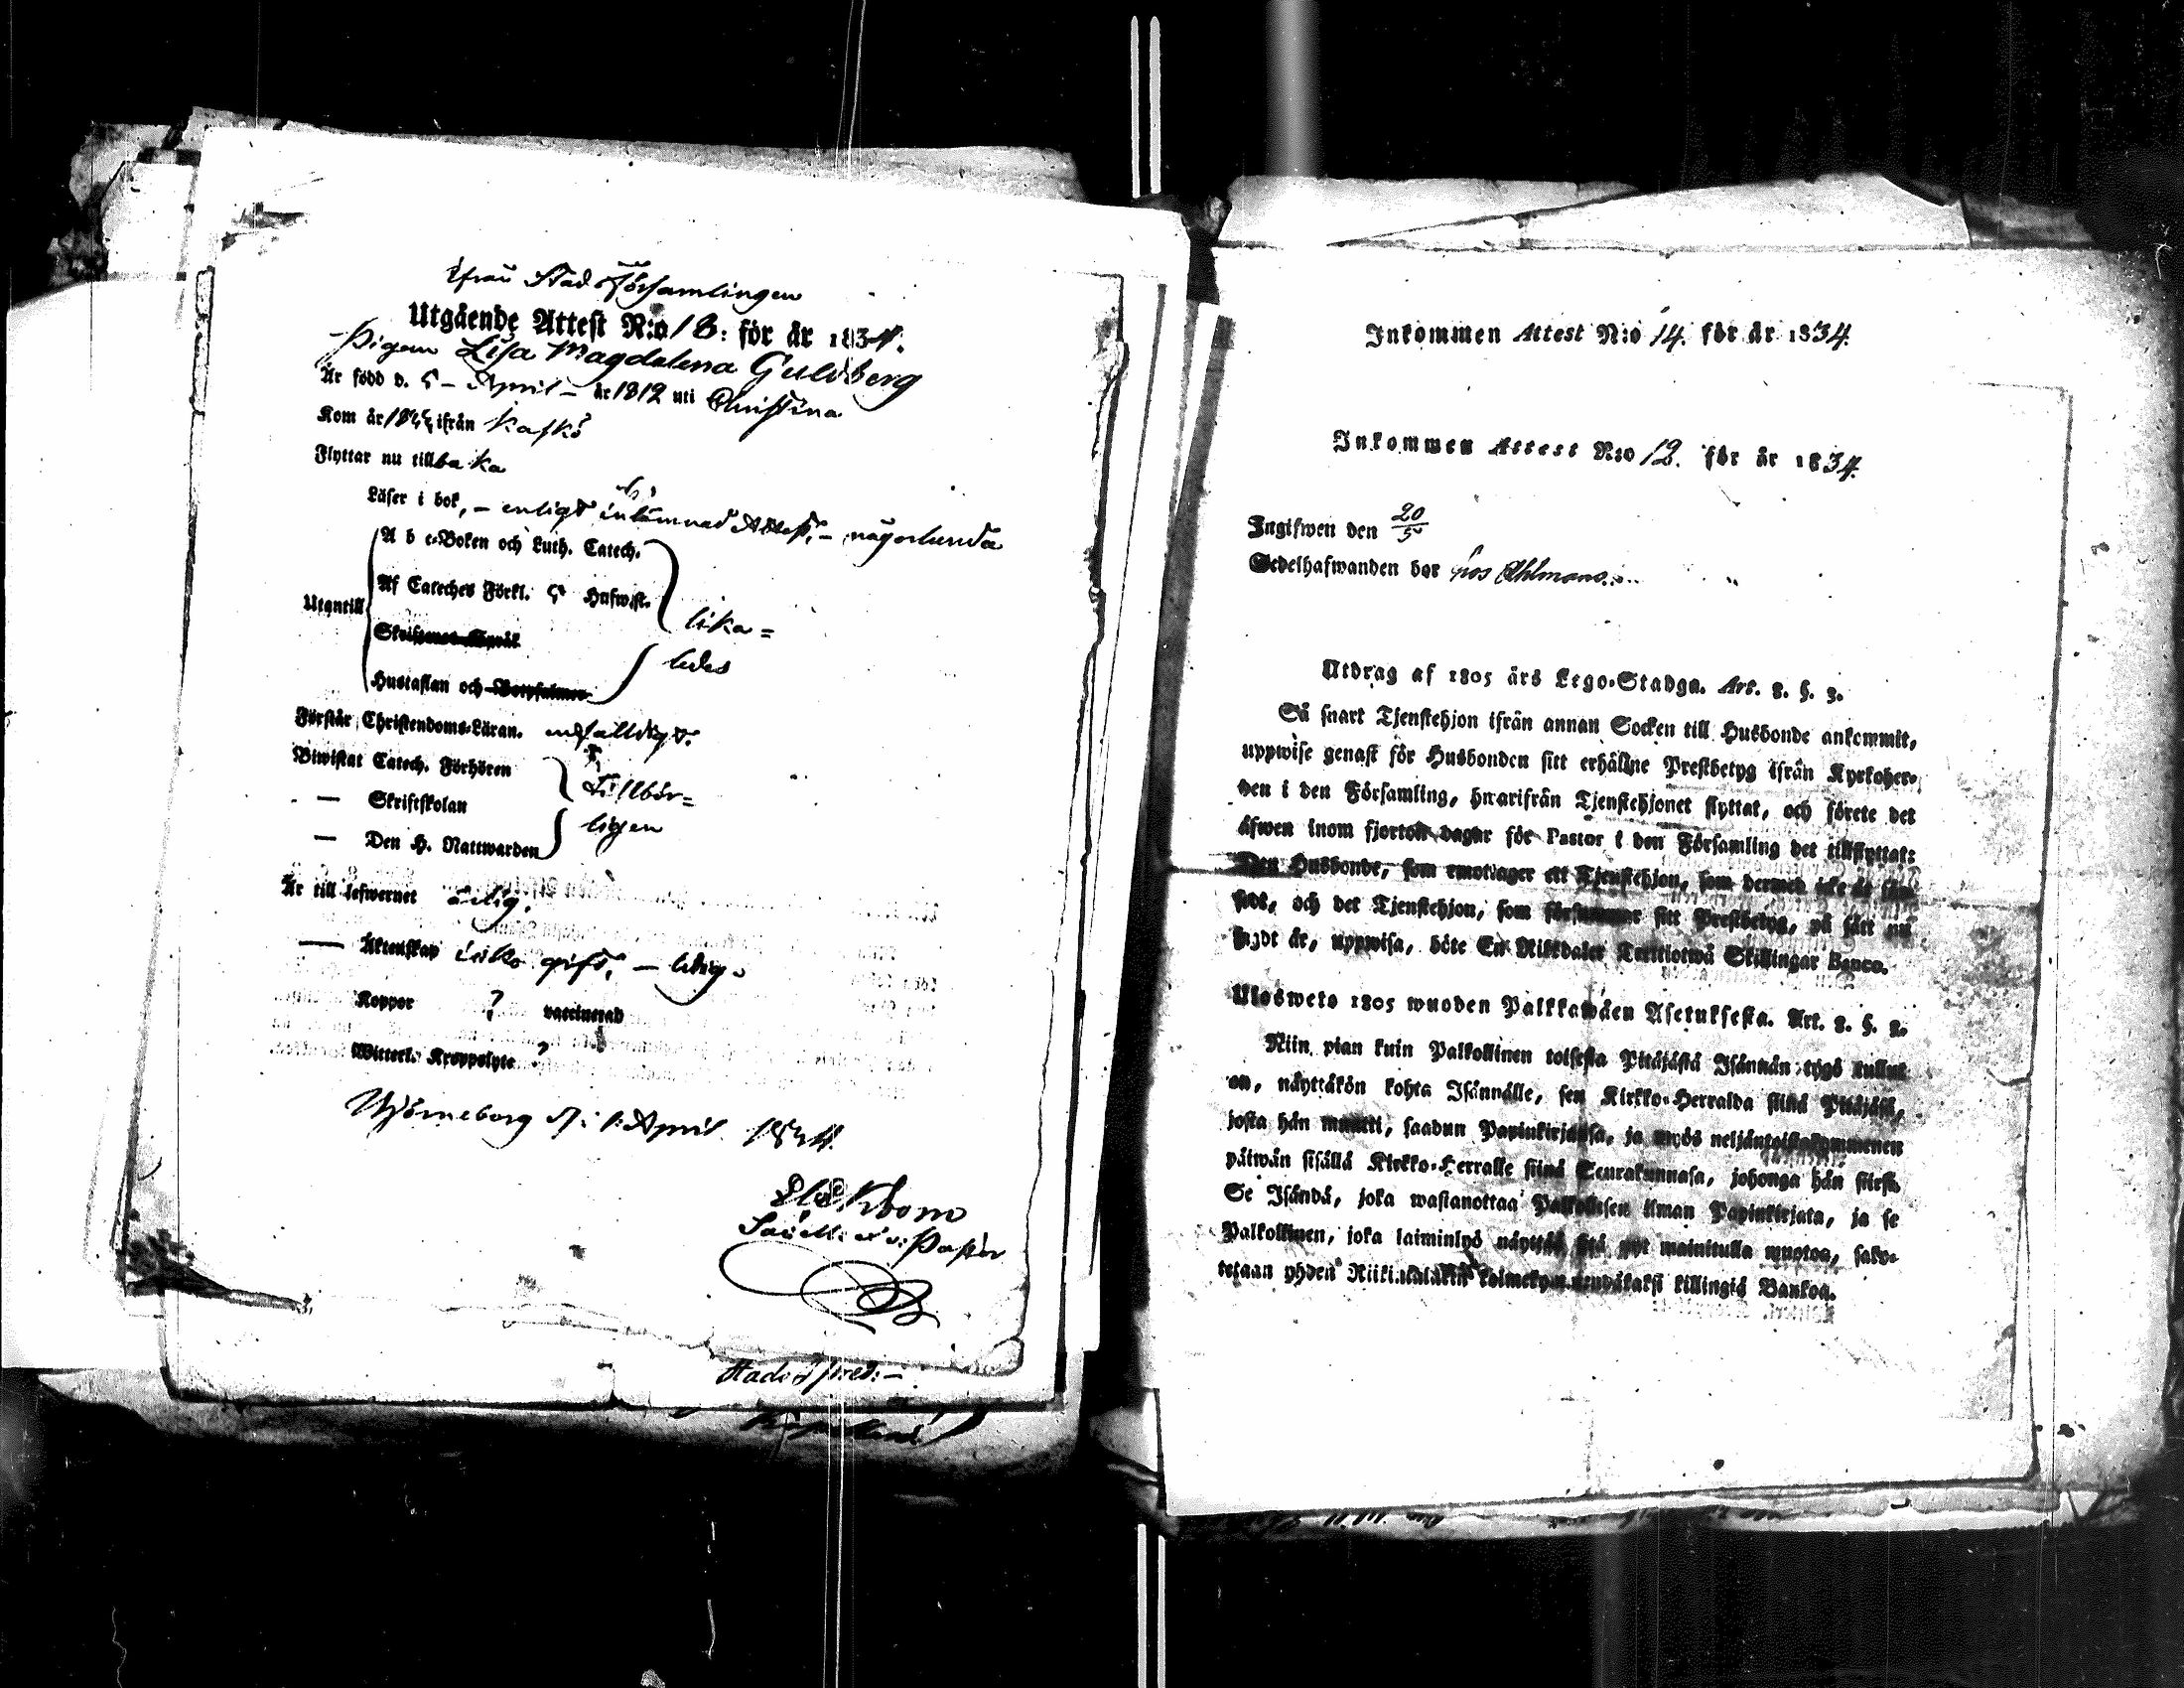 ifrån Stads Församlingen
Utgående Attest N:o 18: för år 1834.
Pigan Lisa Magdalena Guldberg
Är född d. 5 – April – år 1812 uti Christina
Kom år ifrån Kaskö
Flyttar nu tillbaka
Läser i bok, – enligt inlämnad Attest, – någorlunda
A b c-Boken och Luth. Catech.
Af Cateches Förkl. 5 Hufwst.
Utantill
lika=
Skriftenes Språk
ledes
Hustaflan och Botpsalmer
Förstår Christendoms-Läran. enfaldigt.
Biwistat Catech. Förhören
Tillbör=
— Skriftskolan
ligen
— Den H. Nattwarden
Är till lefwernet ärlig.
— Äktenskap icke gift, – ledig.
Koppor ? vaccinerad
Witterl. Kroppslyte ?
Björneborg d. 1: April 1834.
Pastor
Inkommen Attest N:o 14. för år 1834.
Inkommen Attest N:o 12. för år 1834.
Ingifwen den 20/5
Sedelhafwanden bor hos Ahlmans
Utdrag af 1805 års Lego-Stadga. Art. 2. §. 3.
Så snart Tjenstehjon ifrån annan Socken till Husbonde ankommit,
uppwise genast för Husbonden sitt erhållne Prestbetyg ifrån Kyrkoher-
den i den Församling, hwarifrån Tjenstehjonet flyttat, och förete det
äfwen inom fjorton dagar för Pastor i den Församling det tillflyttat:
Den Husbonde, som emottager ett Tjenstehjon, som dermed icke är för-
sedt, och det Tjenstehjon, som försummar sitt Prestbetyg, på sätt nu
sagdt är, uppwisa, böte En Riksdaler Trettiotwå Skillingar Banco.
Ulosweto 1805 wuoden Palkkawäen Asetuksesta. Art. 2. §. 3.
Niin pian kuin Palkollinen toisesta Pitäjästä Isännän tygö tullut
on, näyttäkön kohta Isännälle, sen Kirkko-Herralda siinä Pitäjäsä,
josta hän muutti, saadun Papinkirjansa, ja myös neljäntoistakymmenen
päiwän sisällä Kirkko-Herralle siinä Seurakunnasa, johonga hän siirsi.
Se Isändä, joka wastanottaa Palkollisen ilman Papinkirjata, ja se
Palkollinen, joka laiminlyö näyttää sitä nyt mainitulla muotoa, sako-
tetaan yhden Riikintalarin kolmekymmendäkaksi killingiä Bankoa.